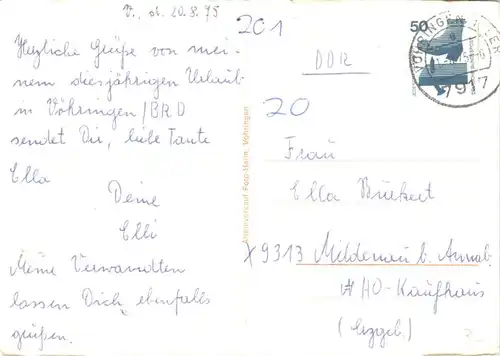 V., d. 20.8.75
Herzliche Grüße von mei-
nem diesjährigen Urlaub
in Vöhringen/BRD
sendet Dir, liebe Tante
Ella
Deine
Elli
Meine Verwandten
lassen Dich ebenfalls
grüßen.
201
DDR
20
50
VÖHRINGEN, ILLER
7917
Alleinverkauf Foto-Heim, Vöhringen
Frau
Ella
X 9313 Mildenau b. Annab.
HO-Kaufhaus
(Erzgeb.)